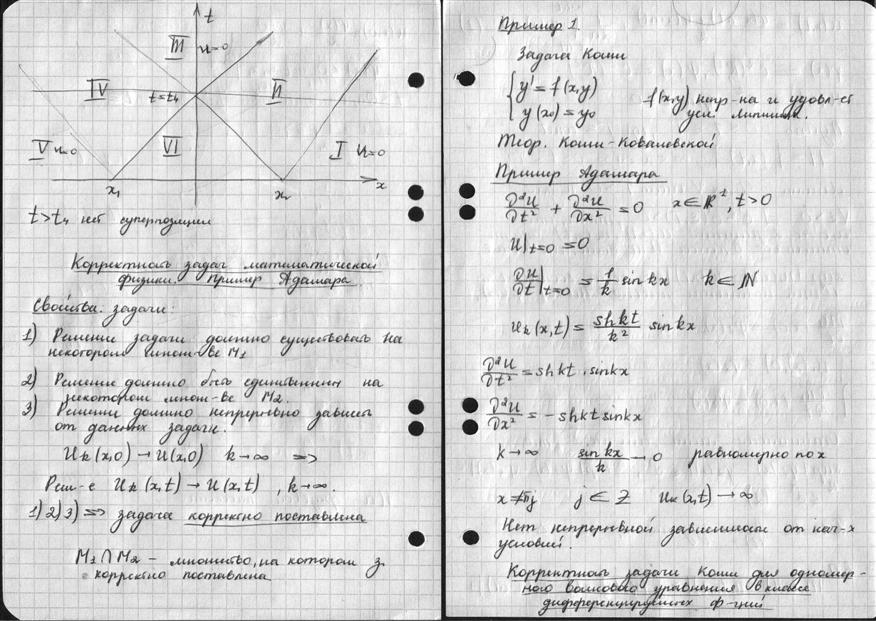 t
III u=0
IV
t=t₄
II
V u=0
VI
I u=0
x₁
x₂
x
t>t₄ нет суперпозиции
Корректность задач математической
физики. Пример Адамара
Свойства задачи:
1) Решение задачи должно существовать на
некотором множ-ве M₁
2) Решение должно быть единственным на
некотором множ-ве M₂.
3) Решение должно непрерывно зависеть
от данных задачи.
Uk(x,0) → U(x,0) k→∞ =>
Реш-е Uk(x,t) → U(x,t), k→∞.
1)2)3) => задача корректно поставлена
M₁∩M₂ – множество, на котором з.
корректно поставлена
Пример 1.
Задача Коши
{ y' = f(x,y)
y(x₀) = y₀
f(x,y) непр-на и удовл-ет
усл Липшица.
Теор. Коши-Ковалевской
Пример Адамара
∂²U/∂t² + ∂²U/∂x² = 0 x∈ℝ, t>0
U|t=0 = 0
∂U/∂t|t=0 = 1/k sin kx k∈ℕ
uk(x,t) = sh kt/k² sin kx
∂²U/∂t² = sh kt · sin kx
∂²U/∂x² = – sh kt sin kx
k→∞ sin kx/k → 0 равномерно по x
x≠πj j∈Z Uk(x,t) → ∞
Нет непрерывной зависимости от нач-х
условий.
Корректность задачи Коши для одномер-
ного волнового уравнения в классе
дифференцируемых ф-ций